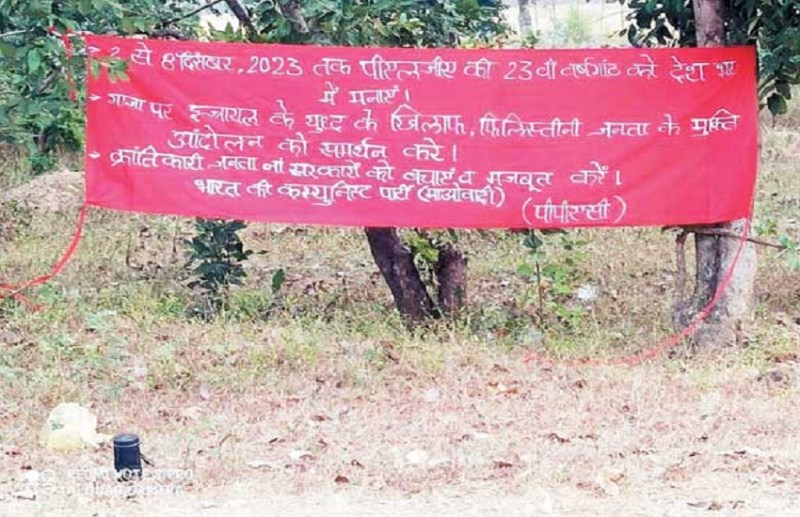 > 2 से 8 दिसंबर, 2023 तक पीएलजीए की 23 वीं वर्षगांठ को देश भर
में मनाएं।
> गाजा पर इजरायल के युध्द के खिलाफ, फिलिस्तीनी जनता के मुक्ति
आंदोलन को समर्थन करें।
> क्रांतिकारी जनता ना सरकारों को बचाएं व मजबूत करें।
भारत की कम्युनिस्ट पार्टी (माओवादी)
(पीपीएससी)
REDMI NOTE 7 PRO